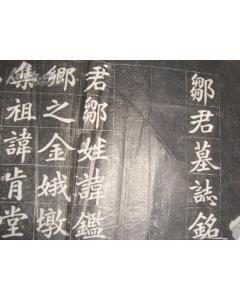 鄒君墓誌銘
君鄒姓諱鑑
鄉之金娥墩
集祖諱肯堂